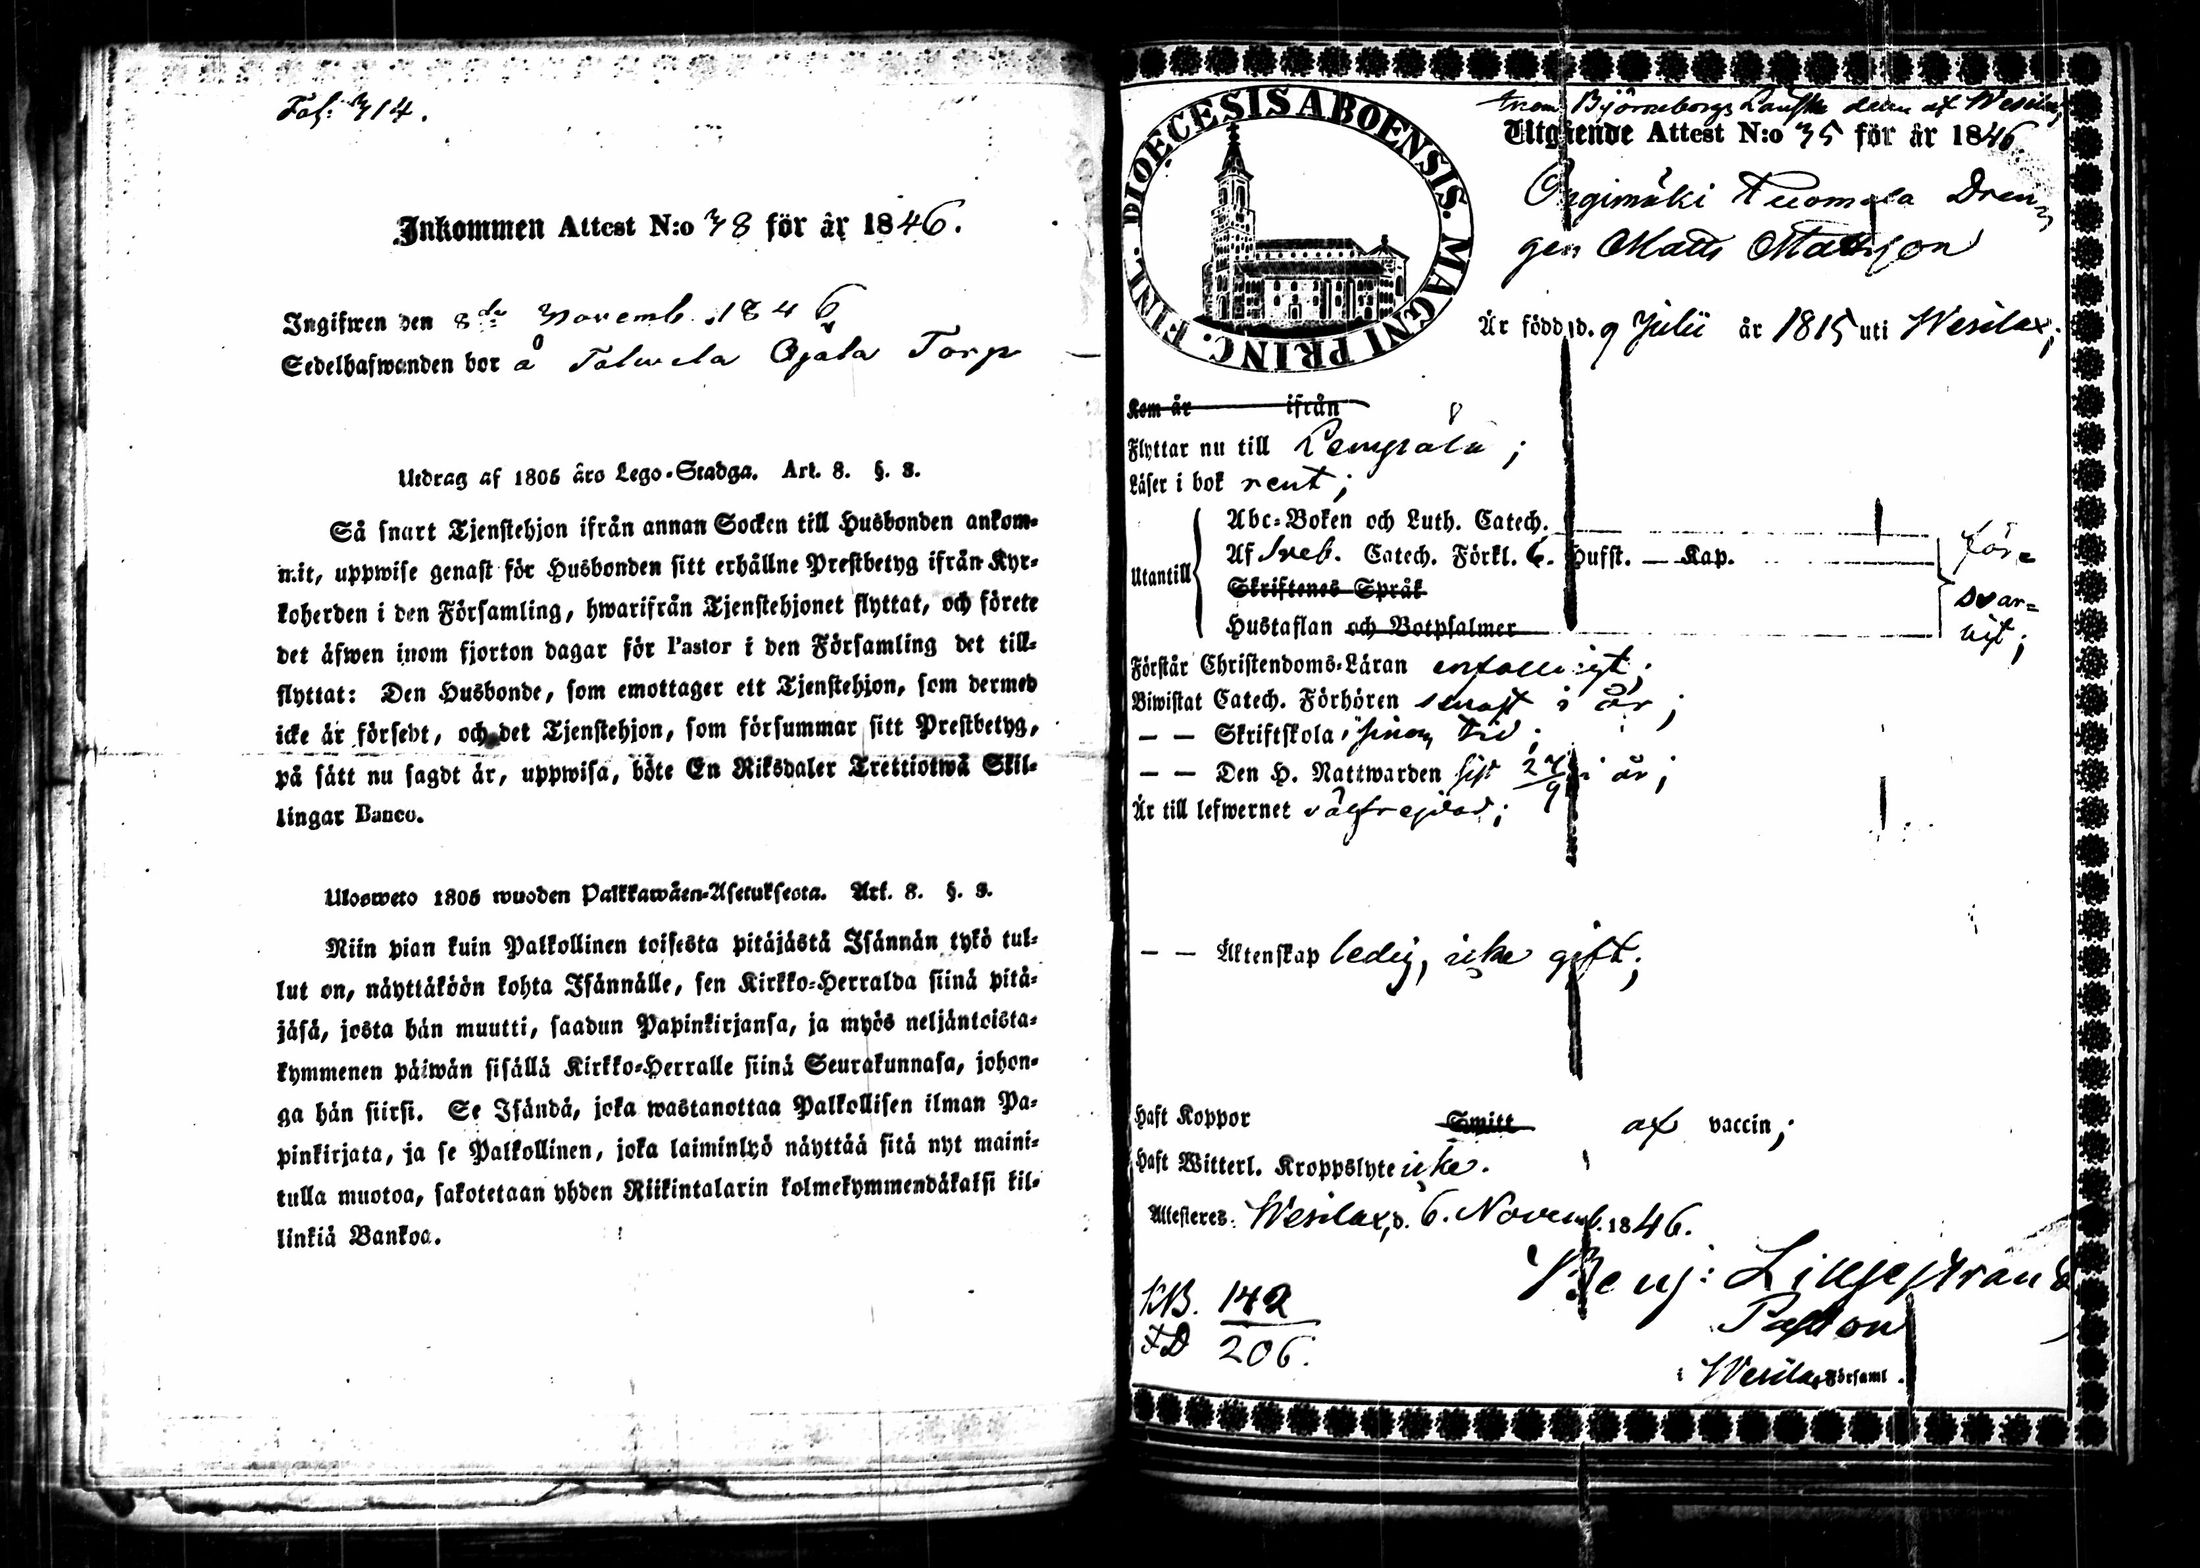 Fol: 314.
Inkommen Attest N:o 38 för år 1846.
Ingifwen den 8de Novemb. 1846
Sedelhafwanden bor å Talwela Ojala Torp
Utdrag af 1805 års Lego-Stadga. Art. 8. §. 3.
Så snart Tjenstehjon ifrån annan Socken till Husbonden ankom-
mit, uppwise genast för Husbonden sitt erhållne Prestbetyg ifrån Kyr-
koherden i den Församling, hwarifrån Tjenstehjonet flyttat, och förete
det äfwen inom fjorton dagar för Pastor i den Församling det till-
flyttat: Den Husbonde, som emottager ett Tjenstehjon, som dermed
icke är försedt, och det Tjenstehjon, som försummar sitt Prestbetyg,
på sätt nu sagdt är, uppwisa, böte En Riksdaler Trettiotwå Skil-
lingar Banco.
Ulosweto 1805 wuoden Palkkawäen-Asetuksesta. Art. 8. §. 3.
Niin pian kuin Palkollinen toisesta pitäjästä Isännän tykö tul-
lut on, näyttäköön kohta Isännälle, sen Kirkko-Herralda siinä pitä-
jäsä, josta hän muutti, saadun Papinkirjansa, ja myös neljäntoista-
kymmenen päiwän sisällä Kirkko-Herralle siinä Seurakunnasa, johon-
ga hän siirsi. Se Isändä, joka wastanottaa Palkollisen ilman Pa-
pinkirjata, ja se Palkollinen, joka laiminlyö näyttää sitä nyt maini-
tulla muotoa, sakotetaan yhden Riikintalarin kolmekymmendäkaksi kil-
linkiä Bankoa.
DIOECESIS ABOENSIS. MAGNI PRINC. FINL.
Björneborgs af Wesilax
Utgående Attest N:o 35 för år 1846
Tuomola Dren-
gen Matts Mattsson
Är född d. 9 Julii år 1815 uti Wesilax;
Kom år ifrån
Flyttar nu till Lempälä;
Läser i bok rent;
Abc-Boken och Luth. Catech.
Af Sveb. Catech. Förkl. 6. Hufst. — Kap.
Utantill
Skriftenes Språk
Hustaflan och Botpsalmer
för-
svar-
ligt;
Förstår Christendoms-Läran enfalldigt;
Biwistat Catech. Förhören senast i år;
— — Skriftskola i sinom tid;
— — Den H. Nattwarden sist 27/9 i år;
Är till lefwernet välfrejdad;
— — Äktenskap ledig, icke gift;
Haft Koppor Smitt af vaccin;
Haft Witterl. Kroppslyte icke.
Attesteres: Wesilax, d. 6. Novemb. 1846.
Benj: Liljestrand
Pastor
i Wesilax Församl.
KB. 142
206.